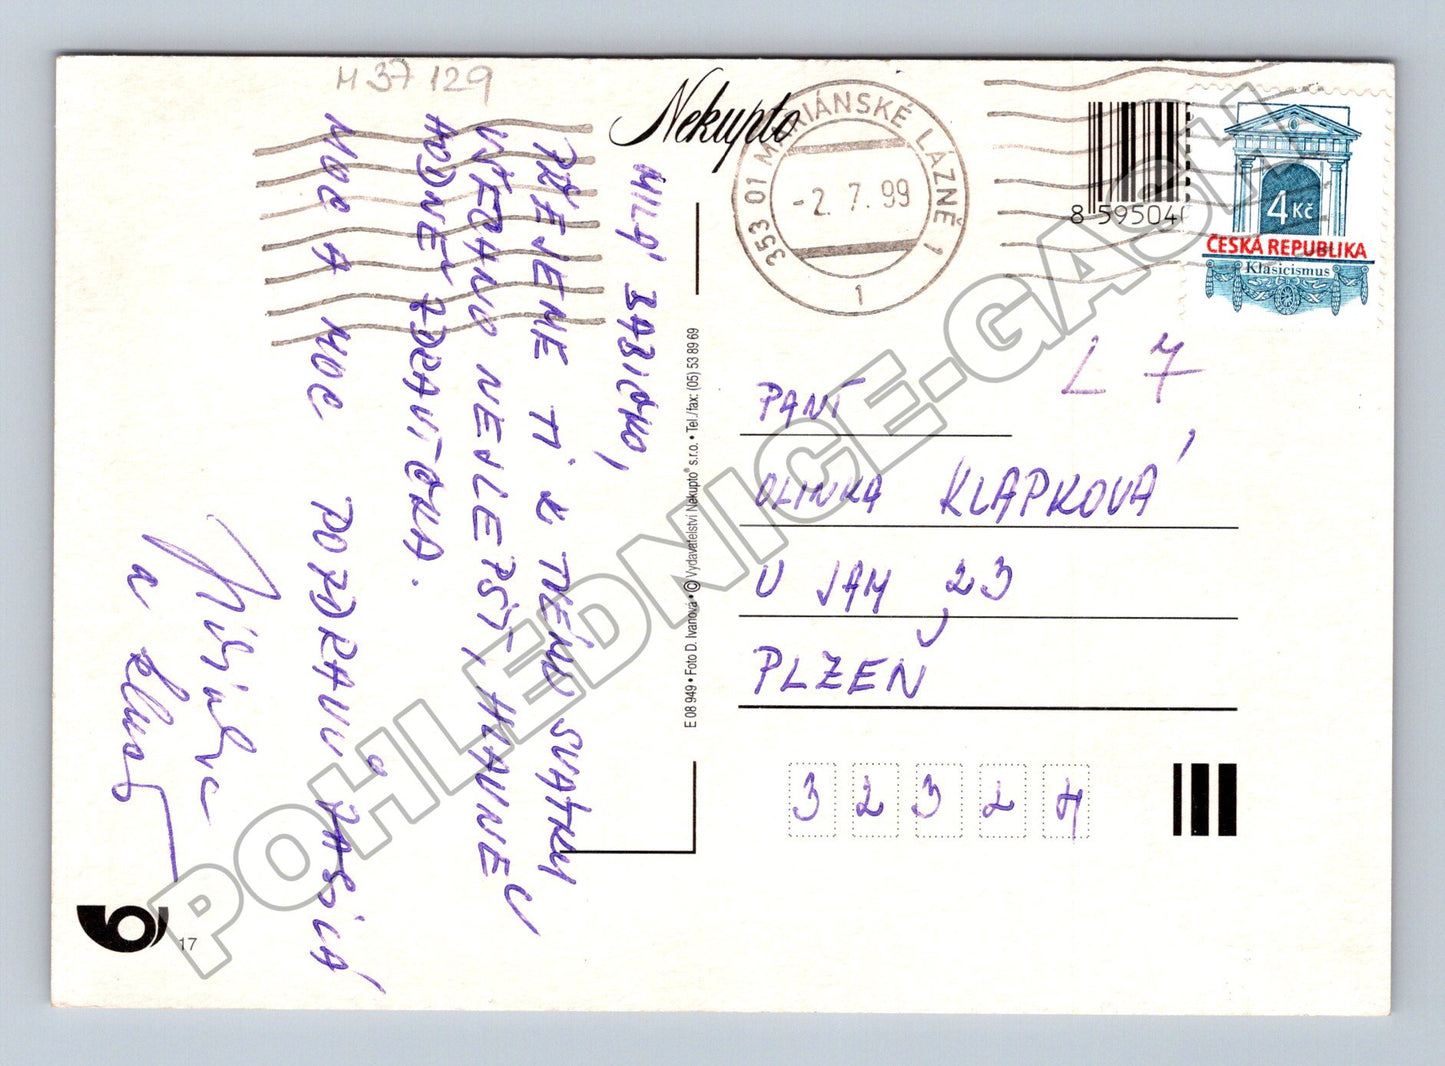 M 37 129
Nekupto
353 01 MARIÁNSKÉ LÁZNĚ 1
-2. 7. 99
1
8 595040
4 Kč
ČESKÁ REPUBLIKA
Klasicismus
MILÁ BABIČKO,
PŘEJEME TI K TVÉMU SVÁTKU
VŠECHNO NEJLEPŠÍ, HLAVNĚ
HODNĚ ZDRAVÍČKA.
MOC A MOC POZDRAVŮ ZASÍLÁ
a
E 08 949 • Foto D. Ivanová • © Vydavatelství Nekupto s.r.o. • Tel./fax: (05) 53 89 69
L 7
PANÍ
OLINKA KLAPKOVÁ
U JAM 23
PLZEŇ
32324
17
POHLEDNICE-GASH